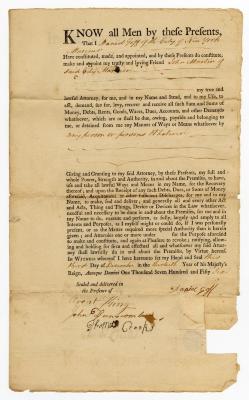 KNOW all Men by these Presents,
That I Daniel Goff of the City of New York
Mariner
Have constituted, made, and appointed, and by these Presents do constitute,
make and appoint my trusty and loving Friend John
said City
my true and
lawful Attorney, for me, and in my Name and Stead, and to my Use, to
ask, demand, sue for, levy, recover and receive all such Sum and Sums of
Money, Debts, Rents, Goods, Wares, Dues, Accounts, and other Demands
whatsoever, which are or shall be due, owing, payable and belonging to
me, or detained from me any Manner of Ways or Means whatsoever by
any person or persons Whatsoever
Giving and Granting to my said Attorney, by these Presents, my full and
whole Power, Strength and Authority, in and about the Premises, to have,
use and take all lawful Ways and Means in my Name, for the Recovery
thereof; and upon the Receipt of any such Debts, Dues, or Sums of Money
aforesaid, Acquittances or other sufficient Discharges, for me and in my
Name, to make, seal and deliver; and generally all and every other Act
and Acts, Thing and Things, Device or Devices in the Law whatsoever,
needful and necessary to be done in and about the Premises, for me and in
my Name to do, execute and perform, as fully, largely and amply to all
Intents and Purposes, as I myself might or could do, if I was personally
present, or as the Matter required more special Authority than is herein
given; and Attornies one or more under for the Purpose aforesaid
to make and constitute, and again at Pleasure to revoke; ratifying, allow-
ing and holding for firm and effectual all and whatsoever my said Attor-
ney shall lawfully do in and about the Premises, by Virtue hereof.
In WITNESS whereof I have hereunto set my Hand and Seal this
Day of December in the Year of his Majesty's
Reign, Annoque Domini One Thousand Seven Hundred and Fifty
Sealed and delivered in
the Presence of
Daniel Goff
John
Thomas